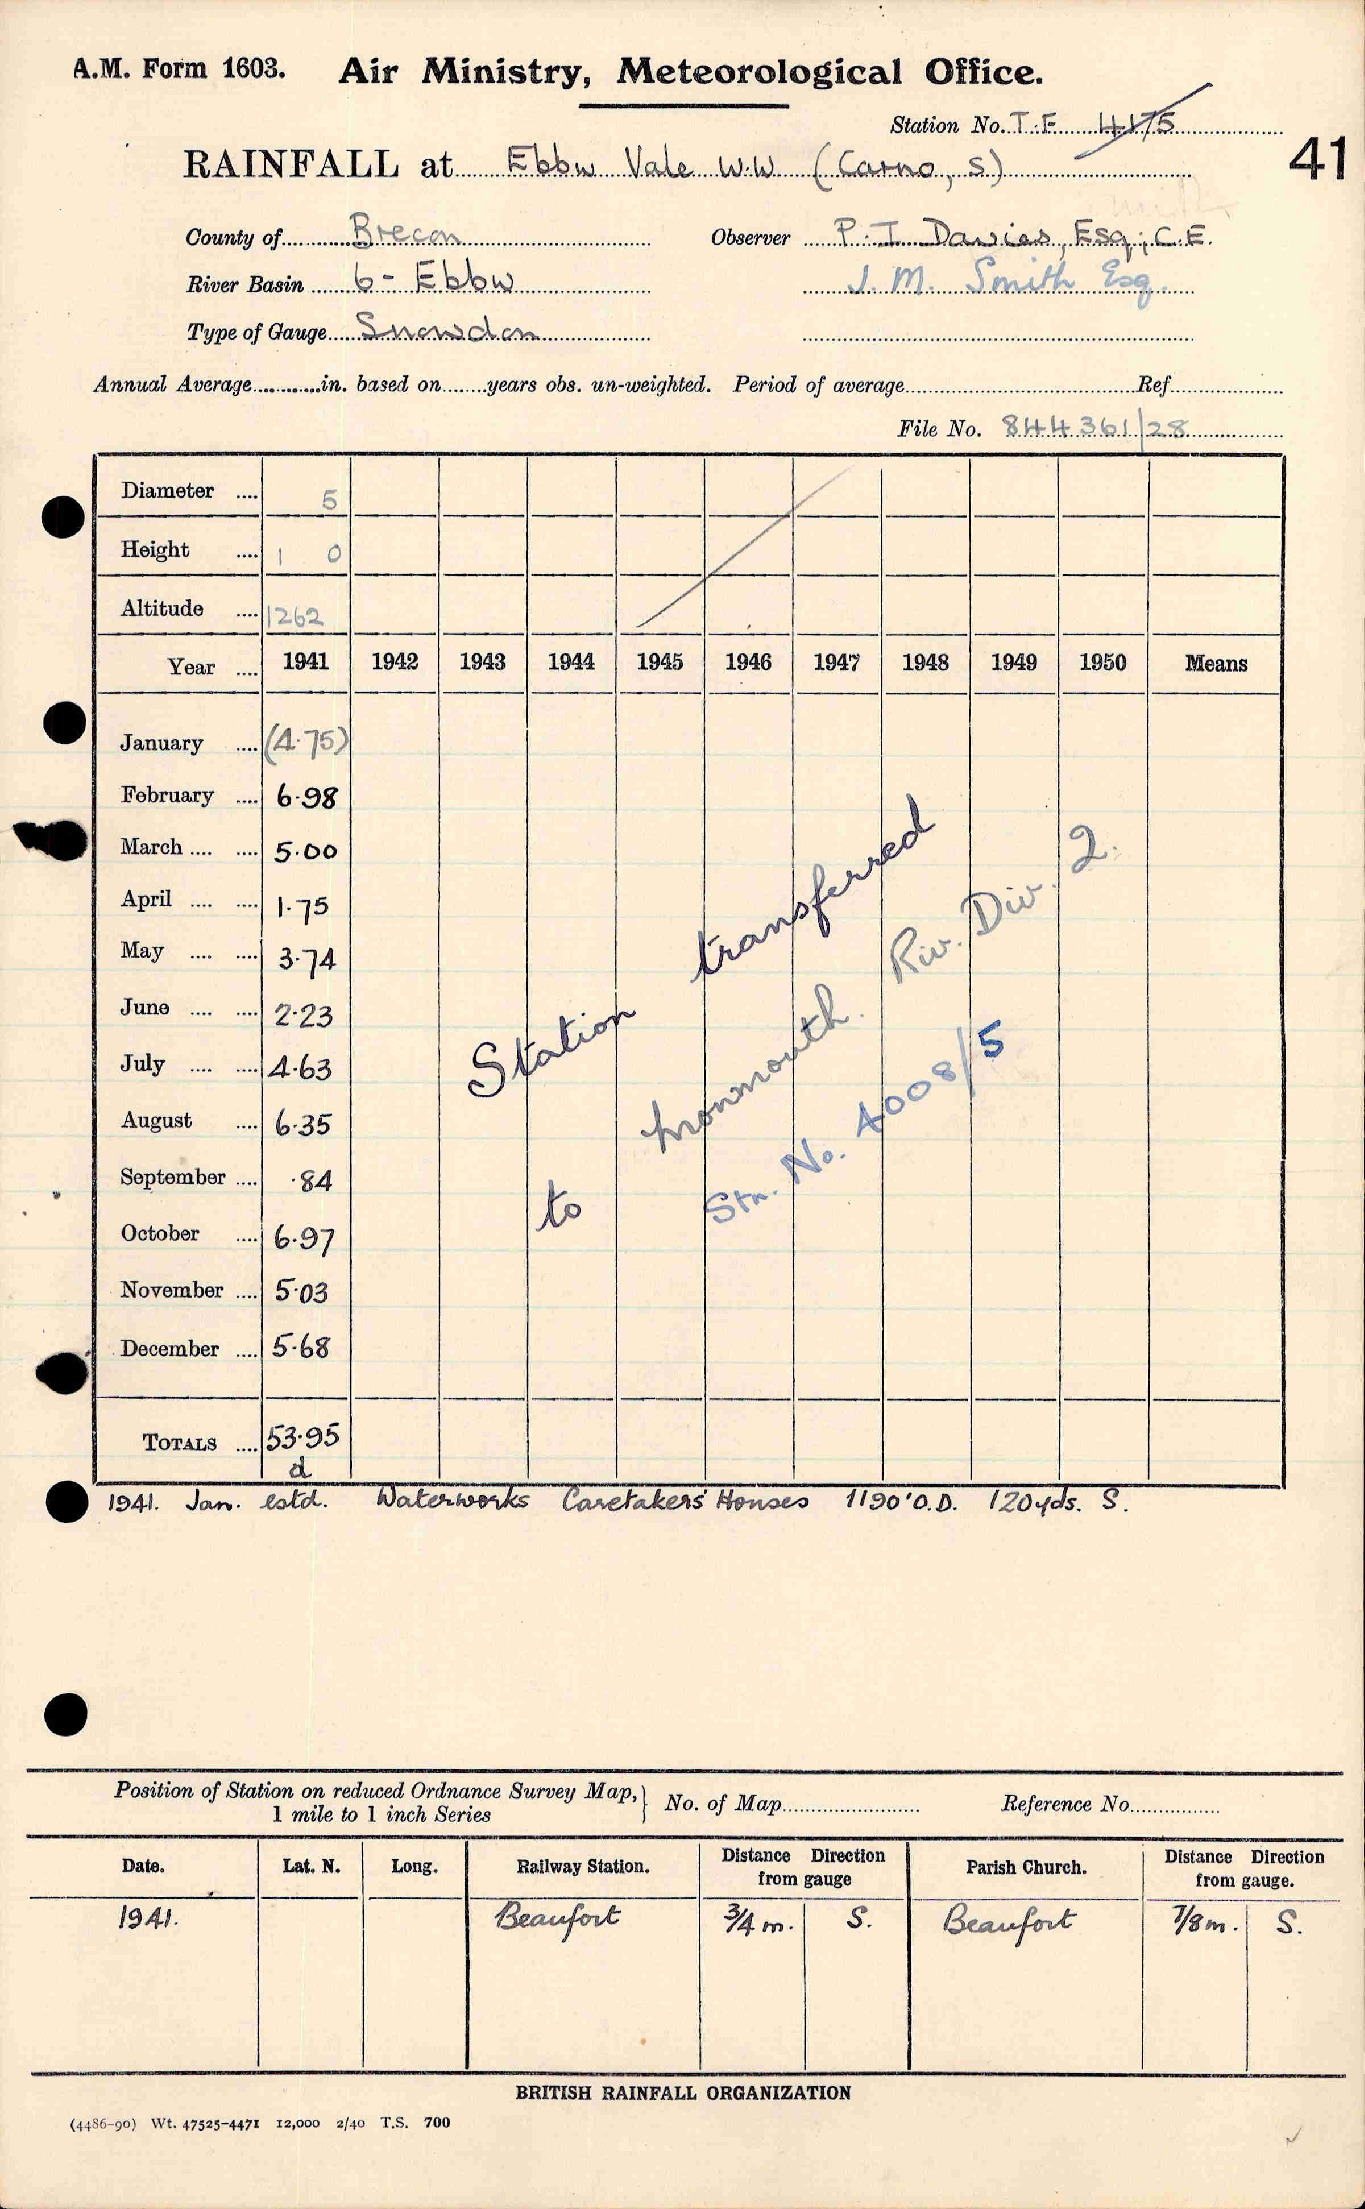 A.M. Form 1603. Air Ministry, Meteorological Office.
Station No. T.F 4175
RAINFALL at Ebbw Vale W.W (Carno, S) 41
County of Brecon Observer P. I. Davies, Esq; C.E.
River Basin 6 - Ebbw J. M. Smith Esq.
Type of Gauge Snowdon
Annual Average in. based on years obs. un-weighted. Period of average Ref.
File No. 844361/28
Diameter .... 5
Height .... 1 0
Altitude .... 1262
Year .... 1941 1942 1943 1944 1945 1946 1947 1948 1949 1950 Means
January .... (4.75)
February .... 6.98
March .... .... 5.00
April .... .... 1.75
May .... .... 3.74
June .... .... 2.23
July .... .... 4.63
August .... 6.35
September .... .84
October .... 6.97
November .... 5.03
December .... 5.68
Station transferred
to Monmouth. Riv. Div. 2.
Stn. No. 4008/5
TOTALS .... 53.95
d
1941. Jan. estd. Waterworks Caretakers' Houses 1190' O.D. 120yds. S.
Position of Station on reduced Ordnance Survey Map, } No. of Map Reference No.
1 mile to 1 inch Series
Date. Lat. N. Long. Railway Station. Distance Direction from gauge Parish Church. Distance Direction from gauge.
1941. Beaufort 3/4 m. S. Beaufort 7/8 m. S.
BRITISH RAINFALL ORGANIZATION
(4486-90) Wt. 47525-4471 12,000 2/40 T.S. 700